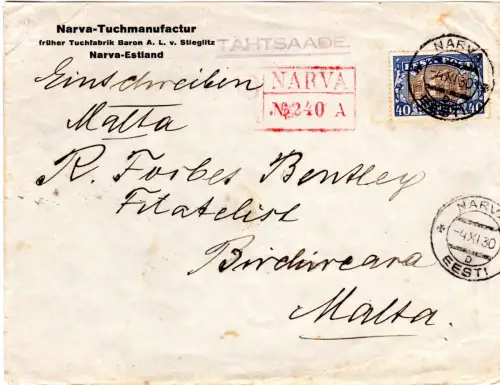 Narva-Tuchmanufactur
früher Tuchfabrik Baron A. L. v. Stieglitz
Narva-Estland
TÄHTSAADE.
NARVA
№ 240 A
NARVA
-4XI30
EESTI
40 40
Einschreiben
Malta
R. Forbes Bentley
Filatelist
Birchircara
Malta.
NARVA
-4XI30
D
EESTI